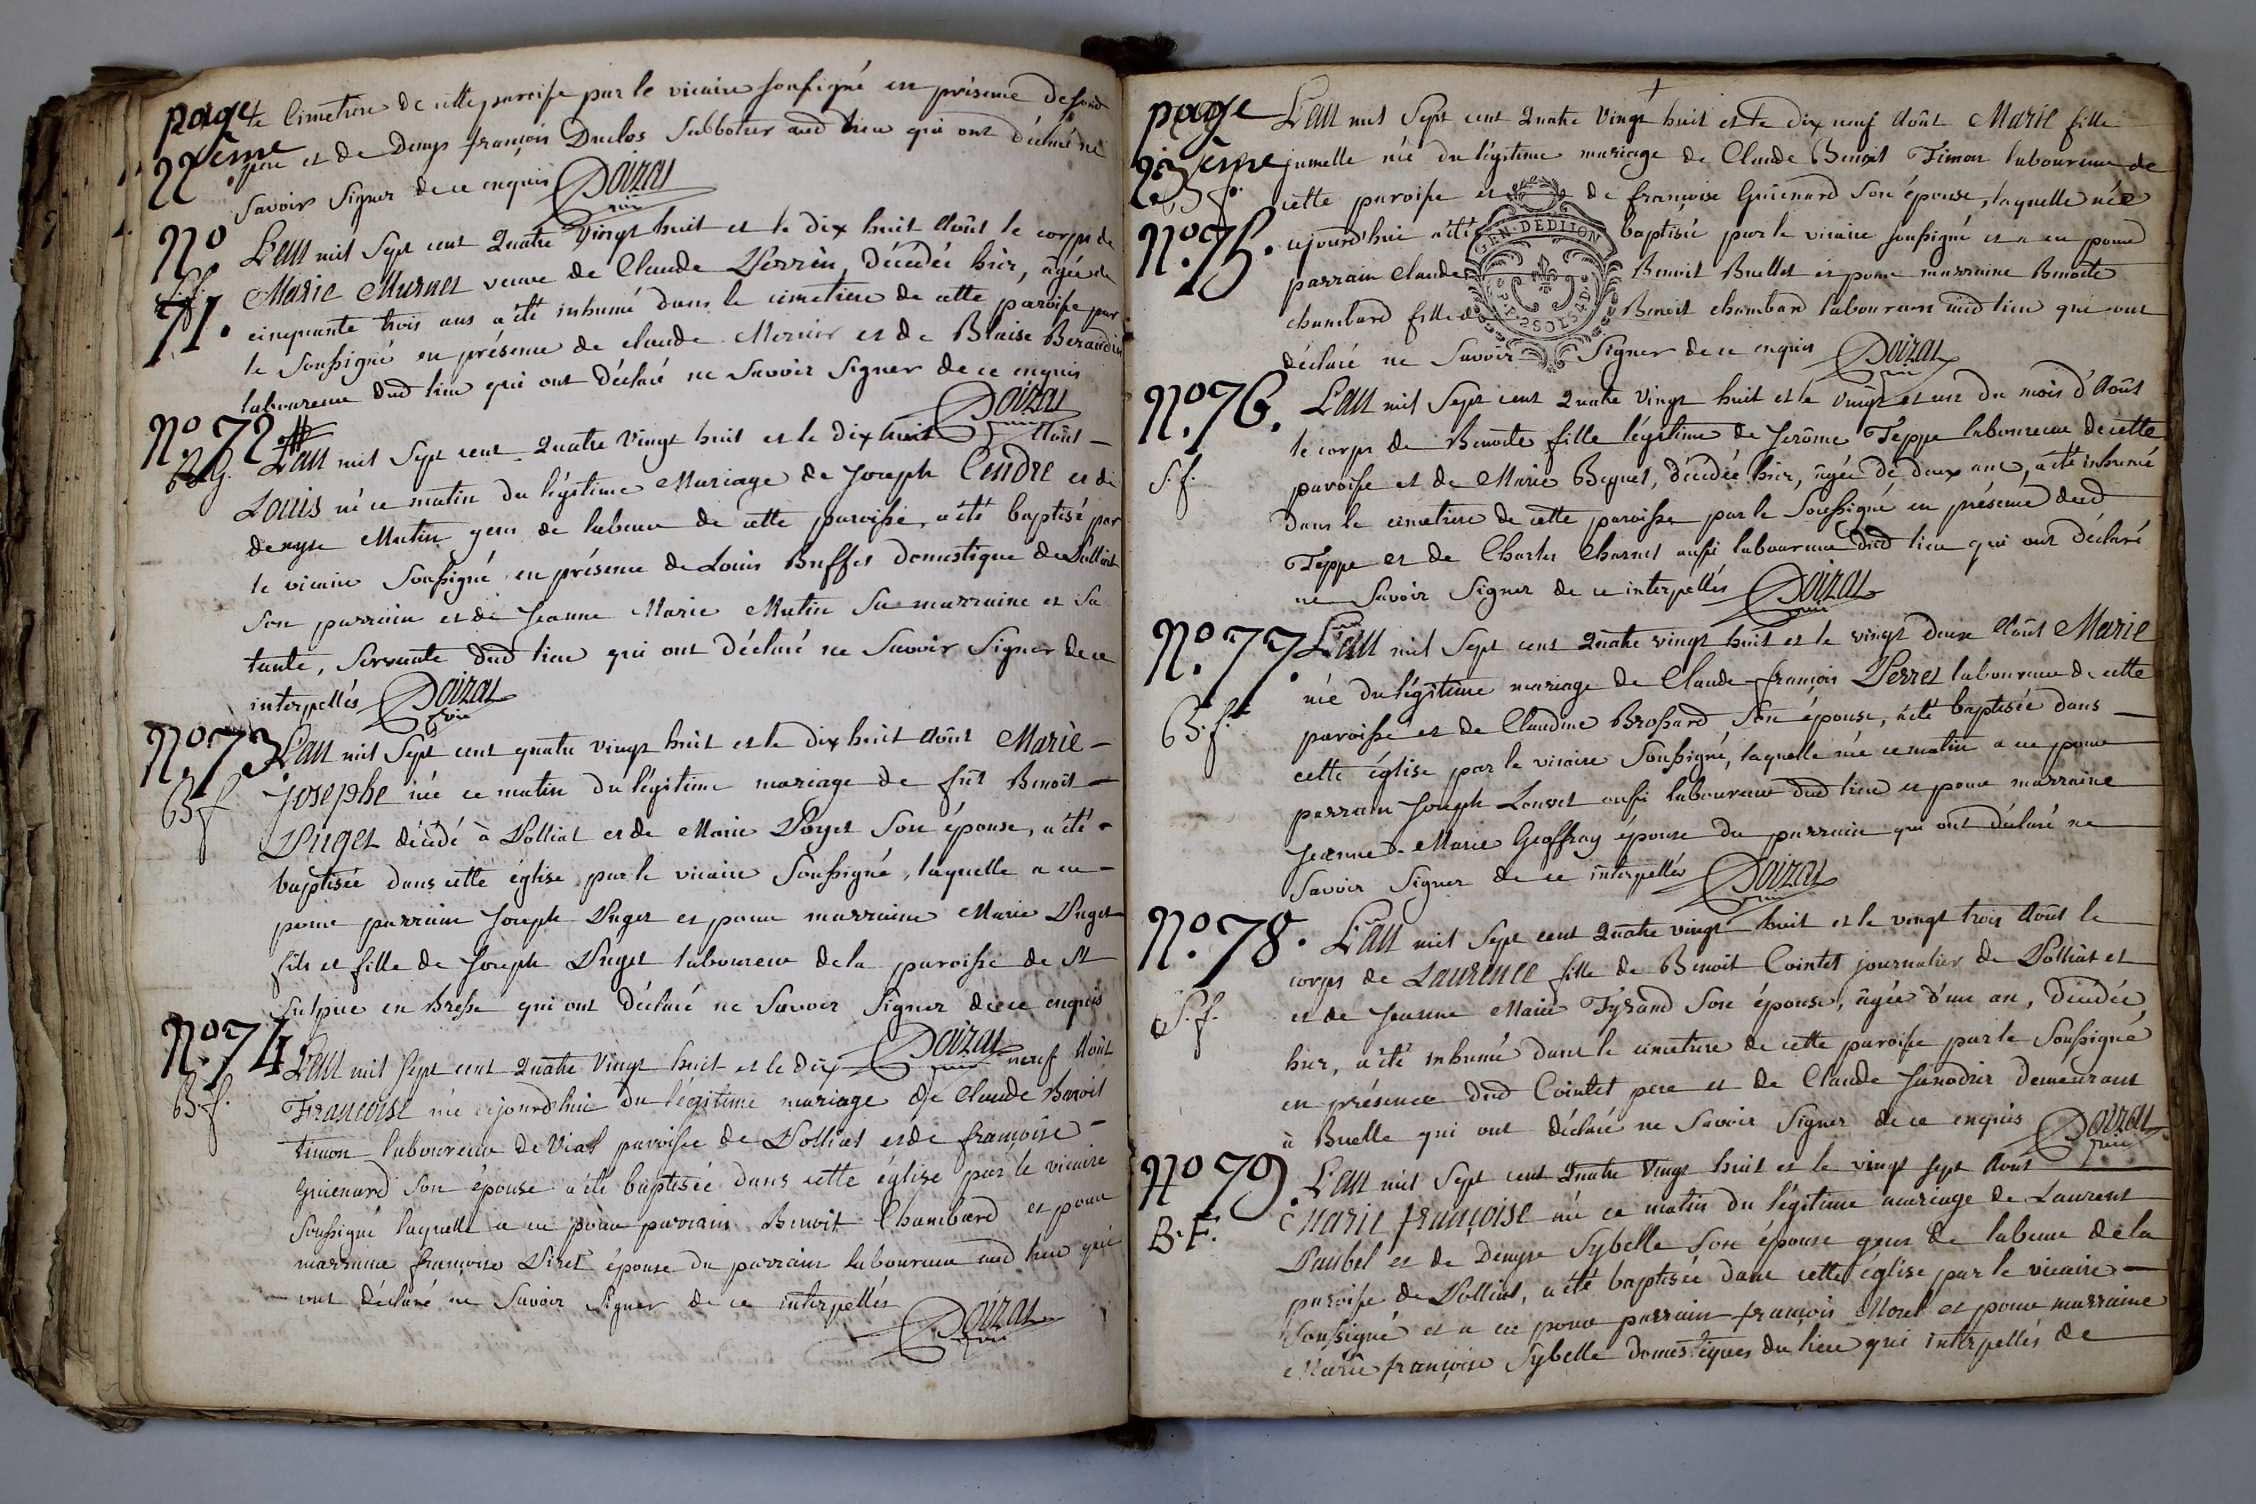 page 22eme
le Cimetiere de cette paroisse par le vicaire soussigné en présence
père et de Denys françois Duclos Sabbotier aud lieu qui ont déclaré ne
savoir signer de ce enquis Doizat
vic
N° 71.
L'an mil Sept cent Quatre Vingt huit et le dix huit Aoûst le corps de
Marie veuve de Claude Perrin, décédée hier, âgée de
cinquante trois ans a été inhumé dans le cimetiere de cette paroisse par
le soussigné en présence de claude Mernier et de Blaise Beraudier
laboureur dud lieu qui ont déclaré ne Savoir Signer de ce enquis
Doizat
N° 72 #
B. g.
L'an mil Sept cent Quatre Vingt huit et le dix huit Aoûst
Louis né ce matin du légitime Mariage de Joseph Cendre et de
denyse Mutin gens de labeur de cette paroisse, a été baptisé par
le vicaire Soussigné en présence de Louis Buffet domestique de Polliat
Son parrain et de Jeanne Marie Mutin Sa marraine et Sa
tante, Servante dud lieu qui ont déclaré ne Savoir Signer de ce
interpellés Doizat
vic
N° 73.
B. f
L'an mil Sept cent quatre vingt huit et le dix huit Aoûst Marie
Josephe née ce matin du légitime mariage de fût Benoît
Puget décédé à Polliat et de Marie Poget Son épouse, a été
baptisée dans cette église par le vicaire Soussigné, laquelle a eu
pour parrain Joseph Puget et pour marraine Marie Puget
fils et fille de Joseph Puget laboureur de la paroisse de St
Sulpice en Bresse qui ont déclaré ne Savoir Signer de ce enquis
Doizat
N° 74
B. f.
L'an mil Sept cent Quatre Vingt huit et le dix neuf Août
Françoise née aujourd'huie du légitime mariage de Claude Benoit
timon laboureur de Vial paroisse de Polliat et de françoise
Guienard son épouse a été baptisée dans cette église par le vicaire
soussigné laquelle a eu pour parrain Benoit Chambard et pour
marraine françoise Piret épouse du parrain laboureur aud lieu qui
ont déclaré ne Savoir Signer de ce interpellés
Doizat
vic
page 23eme
L'an mil Sept cent Quatre Vingt huit et le dix neuf Aoûst Marie fille
jumelle née du légitime mariage de Claude Benoit Timon laboureur de
cette paroisse et de françoise Guienard Son épouse, laquelle née
N° 75.
ajourd'hui a été baptisée par le vicaire soussigné et a eu pour
parrain Claude Benoit Buellet et pour marraine Benoite
chambard fille de Benoit chambard laboureurs aud lieu qui ont
déclaré ne Savoir Signer de ce enquis Doizat
vic
GEN. DE DIION
P.P. 2SOLS 4D
N° 76.
S. f.
L'an mil Sept cent Quatre Vingt huit et le vingt et un du mois d'Août
le corps de Benoite fille légitime de Jerôme Teppe laboureur de cette
paroisse et de Marie Beguet, décédée hier, âgée de deux ans, a été inhumé
dans le cimetiere de cette paroisse par le Soussigné en présence dud
Teppe et de Charles Charnet aussi laboureur dud lieu qui ont déclaré
ne Savoir Signer de ce interpellés Doizat
vic
N° 77.
B. f.
L'an mil Sept cent Quatre vingt huit et le vingt deux Août Marie
née du légitime mariage de Claude françois Perret laboureur de cette
paroisse et de Claudine Brossard Son épouse, a été baptisée dans
cette église par le vicaire Soussigné, laquelle née ce matin a eu pour
parrain Joseph Louvet aussi laboureur dud lieu et pour marraine
Jeanne Marie Geoffray épouse du parrain qui ont déclaré ne
Savoir Signer de ce interpellés Doizat
vic
N° 78.
S. f.
L'an mil Sept cent Quatre vingt huit et le vingt trois Aoûst le
corps de Laurence fille de Benoit Cointet journalier de Polliat et
et de Jeanne Marie Tyrand Son épouse, âgée d'un an, décédée
hier, a été inhumé dans le cimetiere de cette paroisse par le Soussigné
en présence dud Cointet pere et de Claude Janodier demeurant
à Buelle qui ont déclaré ne Savoir Signer de ce enquis Doizat
vic
N° 79.
B. F.
L'an mil Sept cent Quatre Vingt huit et le vingt Sept Aout
Marie françoise née ce matin du légitime mariage de Laurent
Paubel et de Denyse Sybelle Son épouse gens de labeur de la
paroisse de Polliat, a été baptisée dans cette église par le vicaire
Soussigné et a eu pour parrain françois Morel et pour marraine
Marie françoise Sybelle domestiques du lieu qui interpellés de